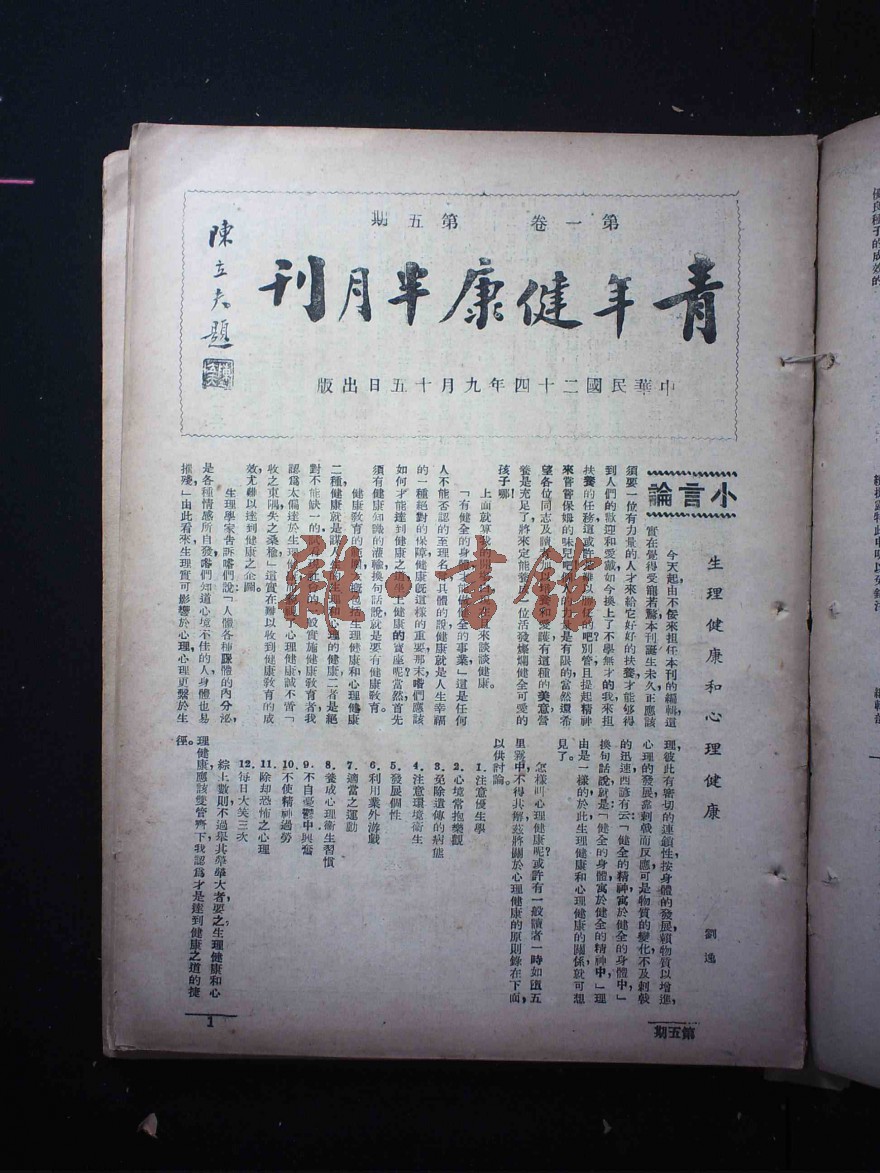 第一卷　第五期
青年健康半月刊
陳立夫題
中華民國二十四年九月十五日出版
小言論
生理健康和心理健康
劉逸
今天起，由不佞來担任本刊的編輯，這
實在覺得受寵若驚本刊誕生未久正應該
須要一位有力量的人才來給它好好的扶養，才能够得
到人們的歡迎和愛戴如今換上了不學無才的我來担
扶養的任務，這或許
來嘗嘗保姆的味兒吧
望各位同志及讀者
養是充足了將來定能
位活發燦爛健全可愛的
孩子哪！
上面就算我的開場白
來談談健康。
「有健全的身體
健全的事業」這是任何
人不能否認的至理名言
具體的說健康就是人生幸福
的一種絕對的保障健康既這樣的重要那末，嗜們應該
如何才能達到健康之道
健康的寶座呢？當然首先
須有健康知識的灌輸換句話說就是要有健康教育。
健康教育的範圍
包括生理健康和心理健康
二種健康就是
的生理和心理的健康，二者是絕
對不能缺一的
一般實施健康教育者我
認爲太偏迷於生理健康
心理健康，誠不啻「
收之東隅失之桑榆」這實在難以收到健康教育的成
效尤難以達到健康之企圖。
生理學家告訴嗜們說「人體各種腺體的內分泌，
是各種情感所自發，嗜們知道心境不佳的人，身體也易
摧殘」由此看來，生理實可影響於心理，心理更繫於生
理，彼此有密切的連鎖性，按身體的發展，賴物質以增進，
心理的發展，靠刺戟而反應，可是物質的變化不及刺戟
的迅速，西諺有云：「健全的精神，寓於健全的身體中」
換句話說，就是：「健全的身體，寓於健全的精神中」理
由是一樣的，於此生理健康和心理健康的關係就可想
見了。
怎樣叫心理健康呢？或許有一般讀者一時如墮五
里霧中，不得其解，茲將關於心理健康的原則錄在下面，
以供討論。
1. 注意優生學
2. 心境常抱樂觀
3. 免除遺傳的病態
4. 注意環境衛生
5. 發展個性
6. 利用業外游戲
7. 適當之運動
8. 養成心理衛生習慣
9. 不自憂鬱中興奮
10. 不使精神過勞
11. 除却恐怖之心理
12. 每日大笑三次
綜上數則不過舉其犖犖大者，要之生理健康和心
理健康應該雙管齊下，我認爲才是達到健康之道的捷
徑。
第五期
1
雜書館